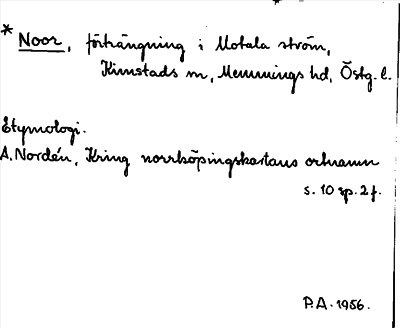 * Noor, förträngning i Motala ström,
Kimstads sn, Memmings hd, Östg. l.
Etymologi.
A. Nordén, Kring norrköpingskartans ortnamn
s. 10 sp. 2 f.
P.A. 1956.